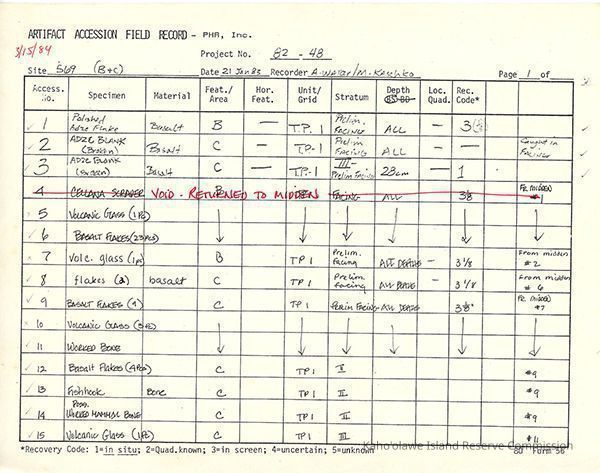 ARTIFACT ACCESSION FIELD RECORD - PHR, Inc.
3/15/84
Project No. 82 - 48
Site 569 (B+C) Date 21 Jan 83 Recorder Page 1 of
Access. no. Specimen Material Feat./ Area Hor. Feat. Unit/ Grid Stratum Depth BS BD Loc. Quad. Rec. Code*
1 Polished Adze Flake Basalt B — T.P. 1 Prelim. Facing ALL — 3
2 ADZE BLANK (Broken) Basalt C — T.P. 1 Prelim Facing ALL — Caught in Facing
3 ADZE BLANK (Broken) Basalt C — T.P. 1 III- Prelim Facing 23cm — 1
4 CELLANA SCRAPER VOID - RETURNED TO MIDDEN B FACING ALL 3/8 FR. MIDDEN #1
5 VOLCANIC GLASS (1 pc)
6 BASALT FLAKES (23 pcs)
7 Volc. glass (1 pc) B TP 1 Prelim. Facing ALL DEPTHS — 3 1/8 From midden #2
8 flakes (2) basalt C TP 1 Prelim. facing ALL DEPTHS — 3 1/8 From midden #6
9 BASALT FLAKES (4) C TP 1 Prelim Facing ALL DEPTHS 3 1/8" FR. MIDDEN #7
10 VOLCANIC GLASS
11 WORKED BONE
12 Basalt Flakes (4 pcs) C TP 1 II #9
13 Fishhook Bone C TP 1 II #9
14 Poss. WORKED MAMMAL BONE C TP 1 II #9
15 Volcanic Glass (1 pc) C TP 1 III #11
*Recovery Code: 1=in situ; 2=Quad.known; 3=in screen; 4=uncertain; 5=unknown 80 Form 56
Kaho'olawe Island Reserve Commission